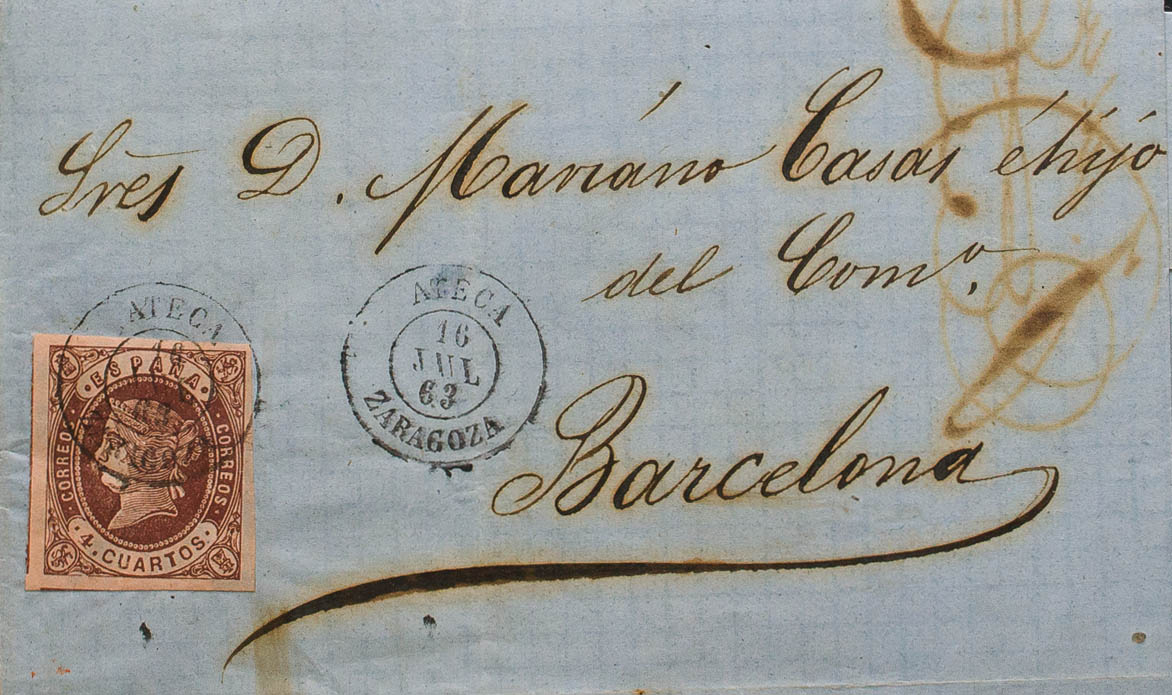 Sres D. Mariano Casas é hijo
del Comº.
Barcelona
ATECA
16
JUL
63
ZARAGOZA
ATECA
16
ESPAÑA
CORREOS
CORREOS
4. CUARTOS